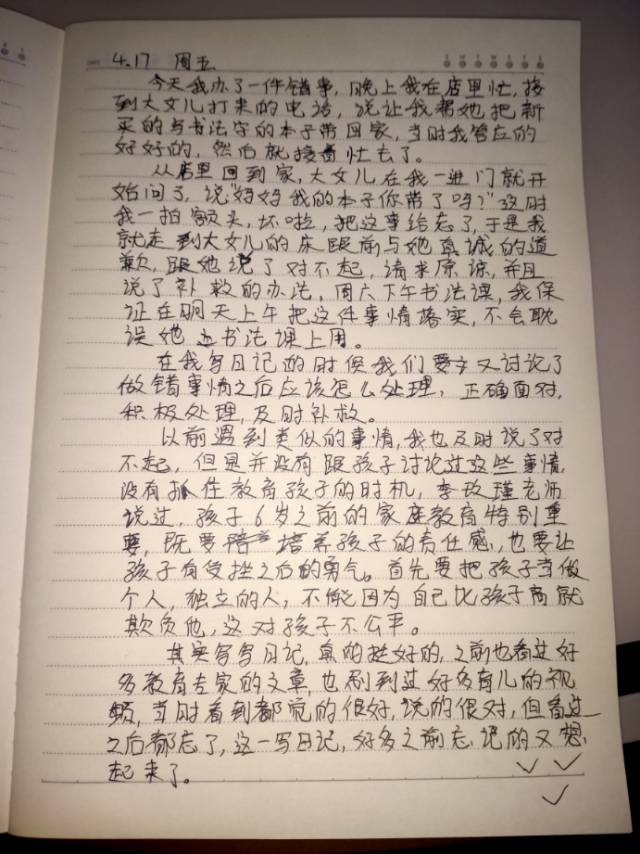 4.17 周五
今天我办了一件错事，晚上我在店里忙，接
到大女儿打来的电话，说让我帮她把新
买的写书法字的本子带回家，当时我答应的
好好的，然后就接着忙去了。
从店里回到家，大女儿在我一进门就开
始问了，说“妈妈我的本子你带了吗？”这时
我一拍额头，坏啦，把这事给忘了，于是我
就走到大女儿的床跟前与她真诚的道
歉，跟她说了对不起，请求原谅，并且
说了补救的办法，周六下午书法课，我保
证在明天上午把这件事情落实，不会耽
误她上书法课上用。
在我写日记的时候我们要辛又讨论了
做错事情之后应该怎么处理，正确面对，
积极处理，及时补救。
以前遇到类似的事情，我也及时说了对
不起，但是并没有跟孩子讨论过这些事情，
没有抓住教育孩子的时机，李玫瑾老师
说过，孩子6岁之前的家庭教育特别重
要，既要培养孩子的责任感，也要让
孩子有受挫之后的勇气。首先要把孩子当做
个人，独立的人，不能因为自己比孩子高就
欺负他，这对孩子不公平。
其实写写日记，真的挺好的，之前也看过好
多教育专家的文章，也刷到过好多育儿的视
频，当时看到都觉的很好，说的很对，但看过
之后都忘了，这一写日记，好多之前忘记的又想
起来了。